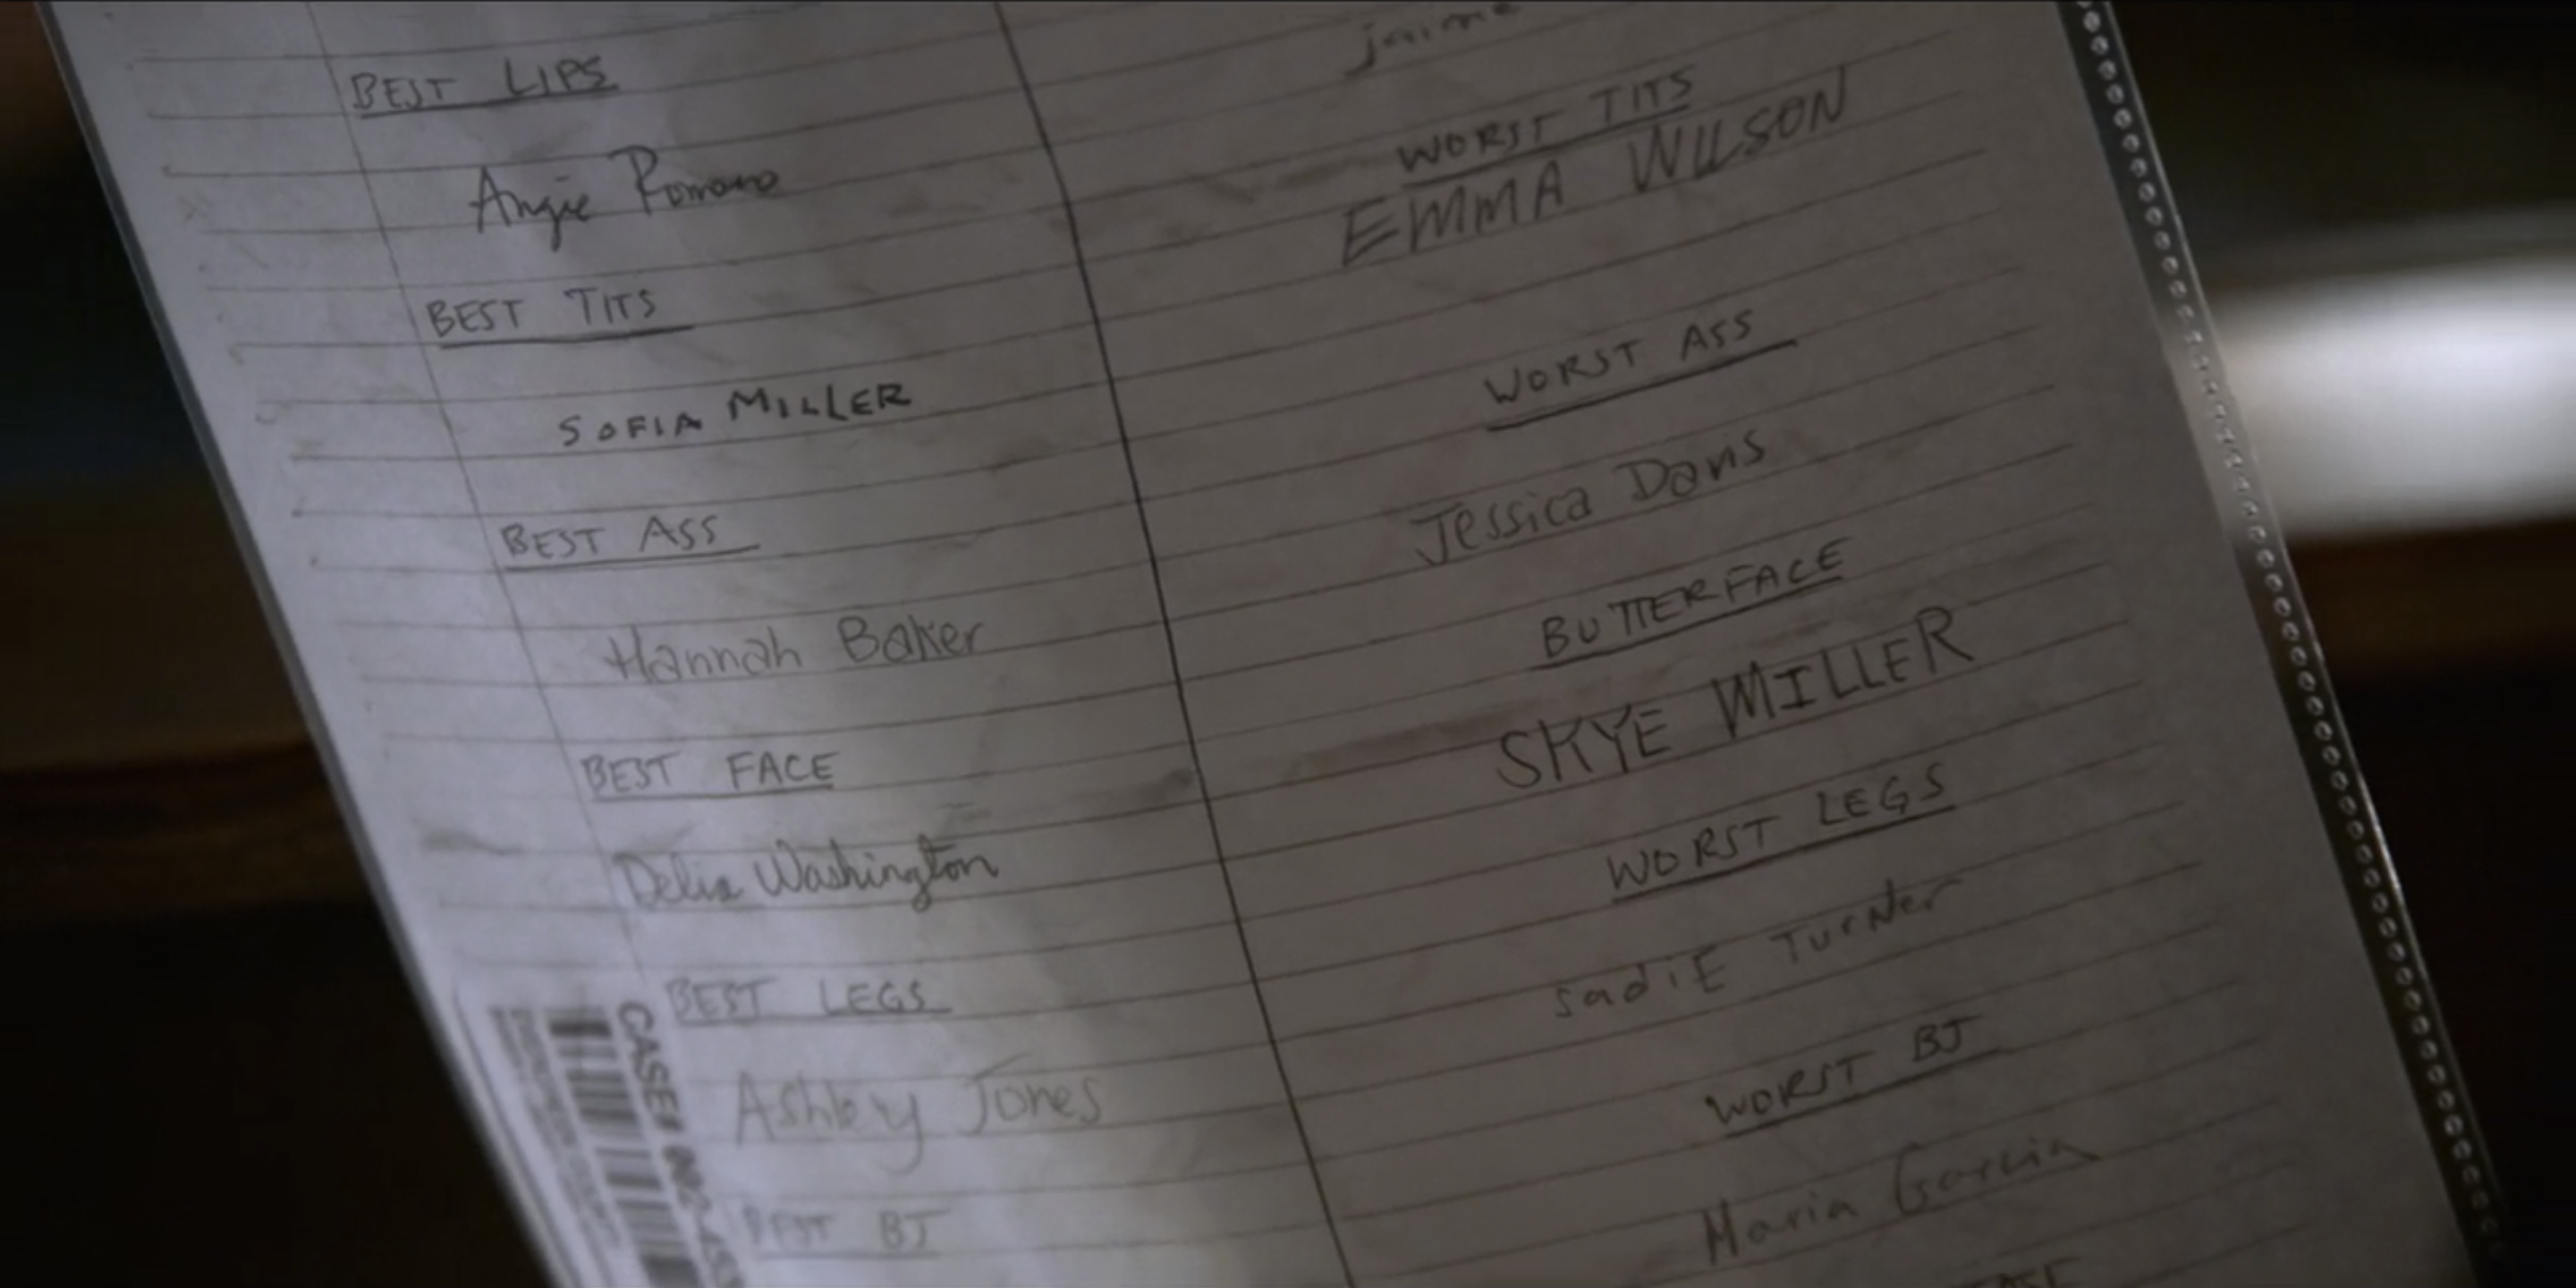 BEST LIPS
Angie Romano
BEST TITS
SOFIA MILLER
BEST ASS
Hannah Baker
BEST FACE
Delia Washington
BEST LEGS
Ashley Jones
BEST BJ
CASE#
jaime
WORST TITS
EMMA WILSON
WORST ASS
Jessica Davis
BUTTERFACE
SKYE MILLER
WORST LEGS
sadiE TurNer
WORST BJ
Maria Garcia